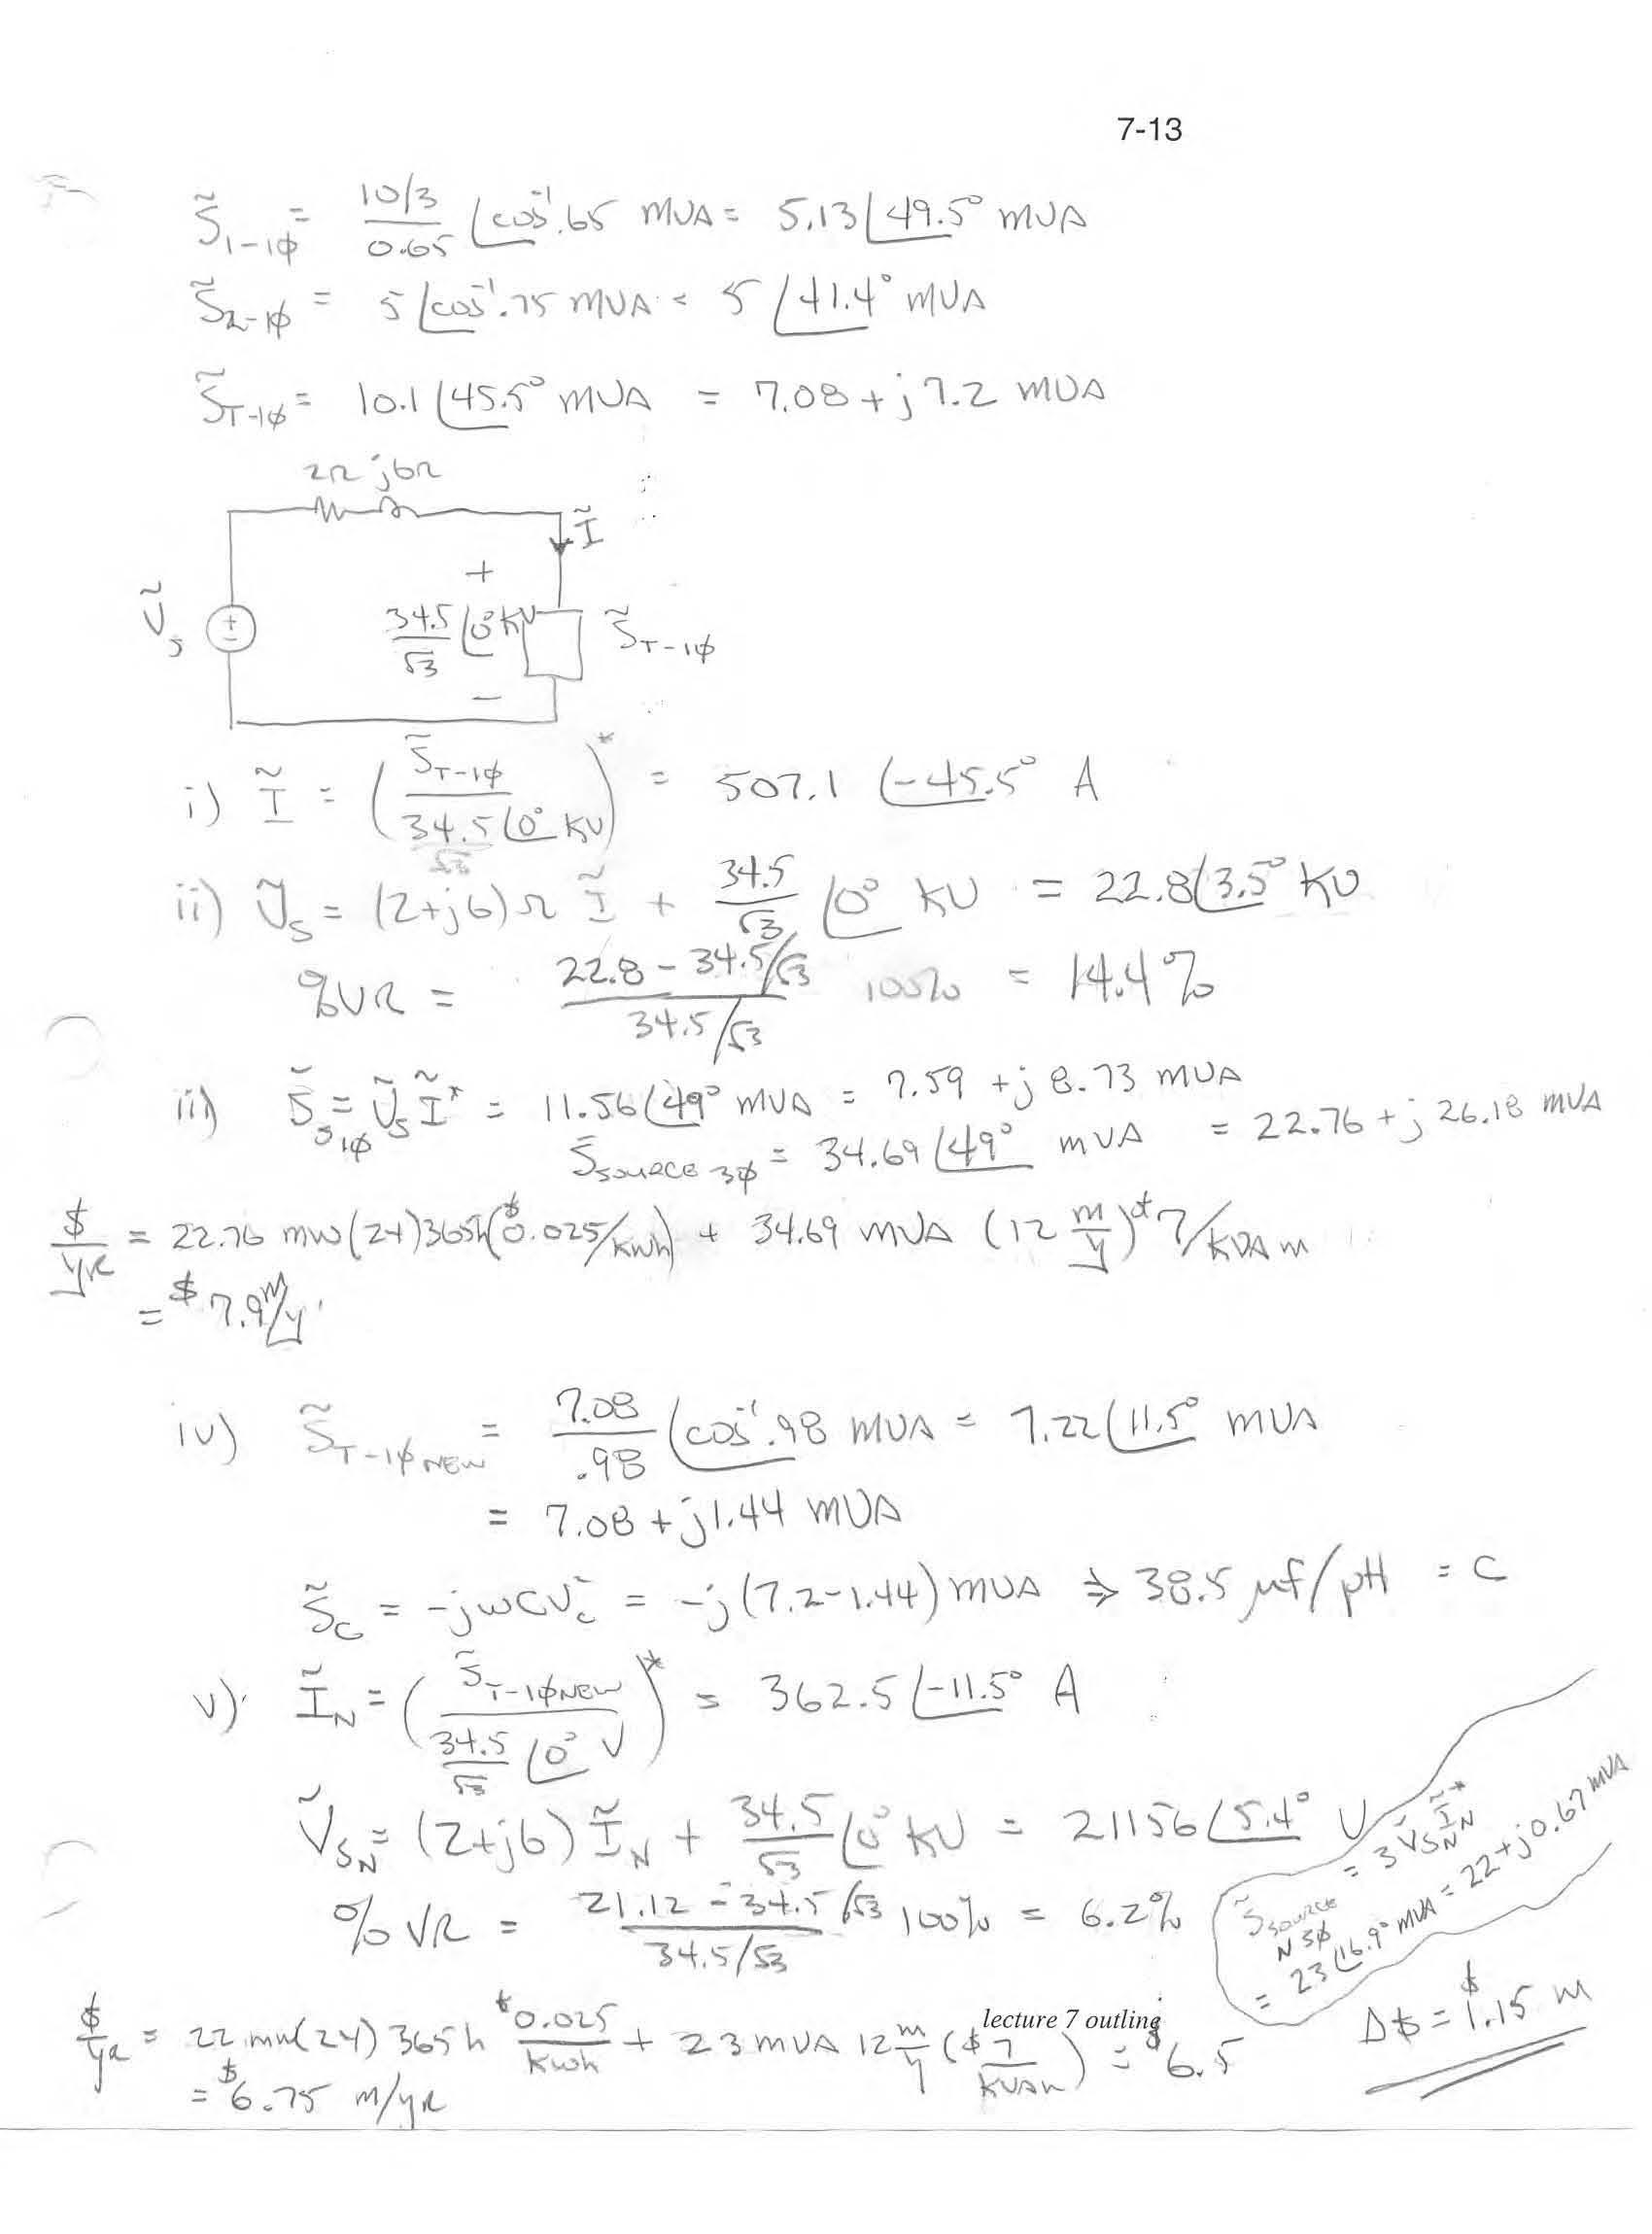 7-13
S̃₁₋₁φ = (10/3)/0.65 ∠cos⁻¹.65 MVA = 5.13∠49.5° MVA
S̃₂₋₁φ = 5∠cos⁻¹.75 MVA = 5∠41.4° MVA
S̃T-1φ = 10.1∠45.5° MVA = 7.08 + j7.2 MVA
2Ω j6Ω
Ĩ
+
Ṽs
+
-
34.5/√3 ∠0° KV
S̃T-1φ
-
i) Ĩ = (S̃T-1φ / (34.5/√3 ∠0° KV))* = 507.1 ∠-45.5° A
ii) Ṽs = (2+j6)Ω Ĩ + 34.5/√3 ∠0° KV = 22.8∠3.5° KV
%VR = (22.8 - 34.5/√3)/(34.5/√3) 100% = 14.4%
iii) S̃s1φ = Ṽs Ĩ* = 11.56∠49° MVA = 7.59 + j8.73 MVA
S̃source 3φ = 34.69∠49° MVA = 22.76 + j26.18 MVA
$/YR = 22.76 MW(24)365h($0.025/KWh) + 34.69 MVA (12 m/y) $7/KVA m
= $7.9 M/y
iv) S̃T-1φ NEW = 7.08/.98 ∠cos⁻¹.98 MVA = 7.22∠11.5° MVA
= 7.08 + j1.44 MVA
S̃c = -jωCVc² = -j(7.2-1.44) MVA ⇒ 38.5 μf/pH = C
v) ĨN = (S̃T-1φNEW / (34.5/√3 ∠0° V))* = 362.5∠-11.5° A
ṼSN = (2+j6) ĨN + 34.5/√3 ∠0° KV = 21156∠5.4° V
%VR = (21.12 - 34.5/√3)/(34.5/√3) 100% = 6.2%
S̃source N3φ = 3 ṼSN ĨN*
= 23∠16.9° MVA = 22 + j0.67 MVA
$/YR = 22 MW(24) 365h $0.025/KWh + 23 MVA 12 m/y ($7/KVAm) = $6.5
= $6.75 M/YR
Δ$ = $1.15 M
lecture 7 outline